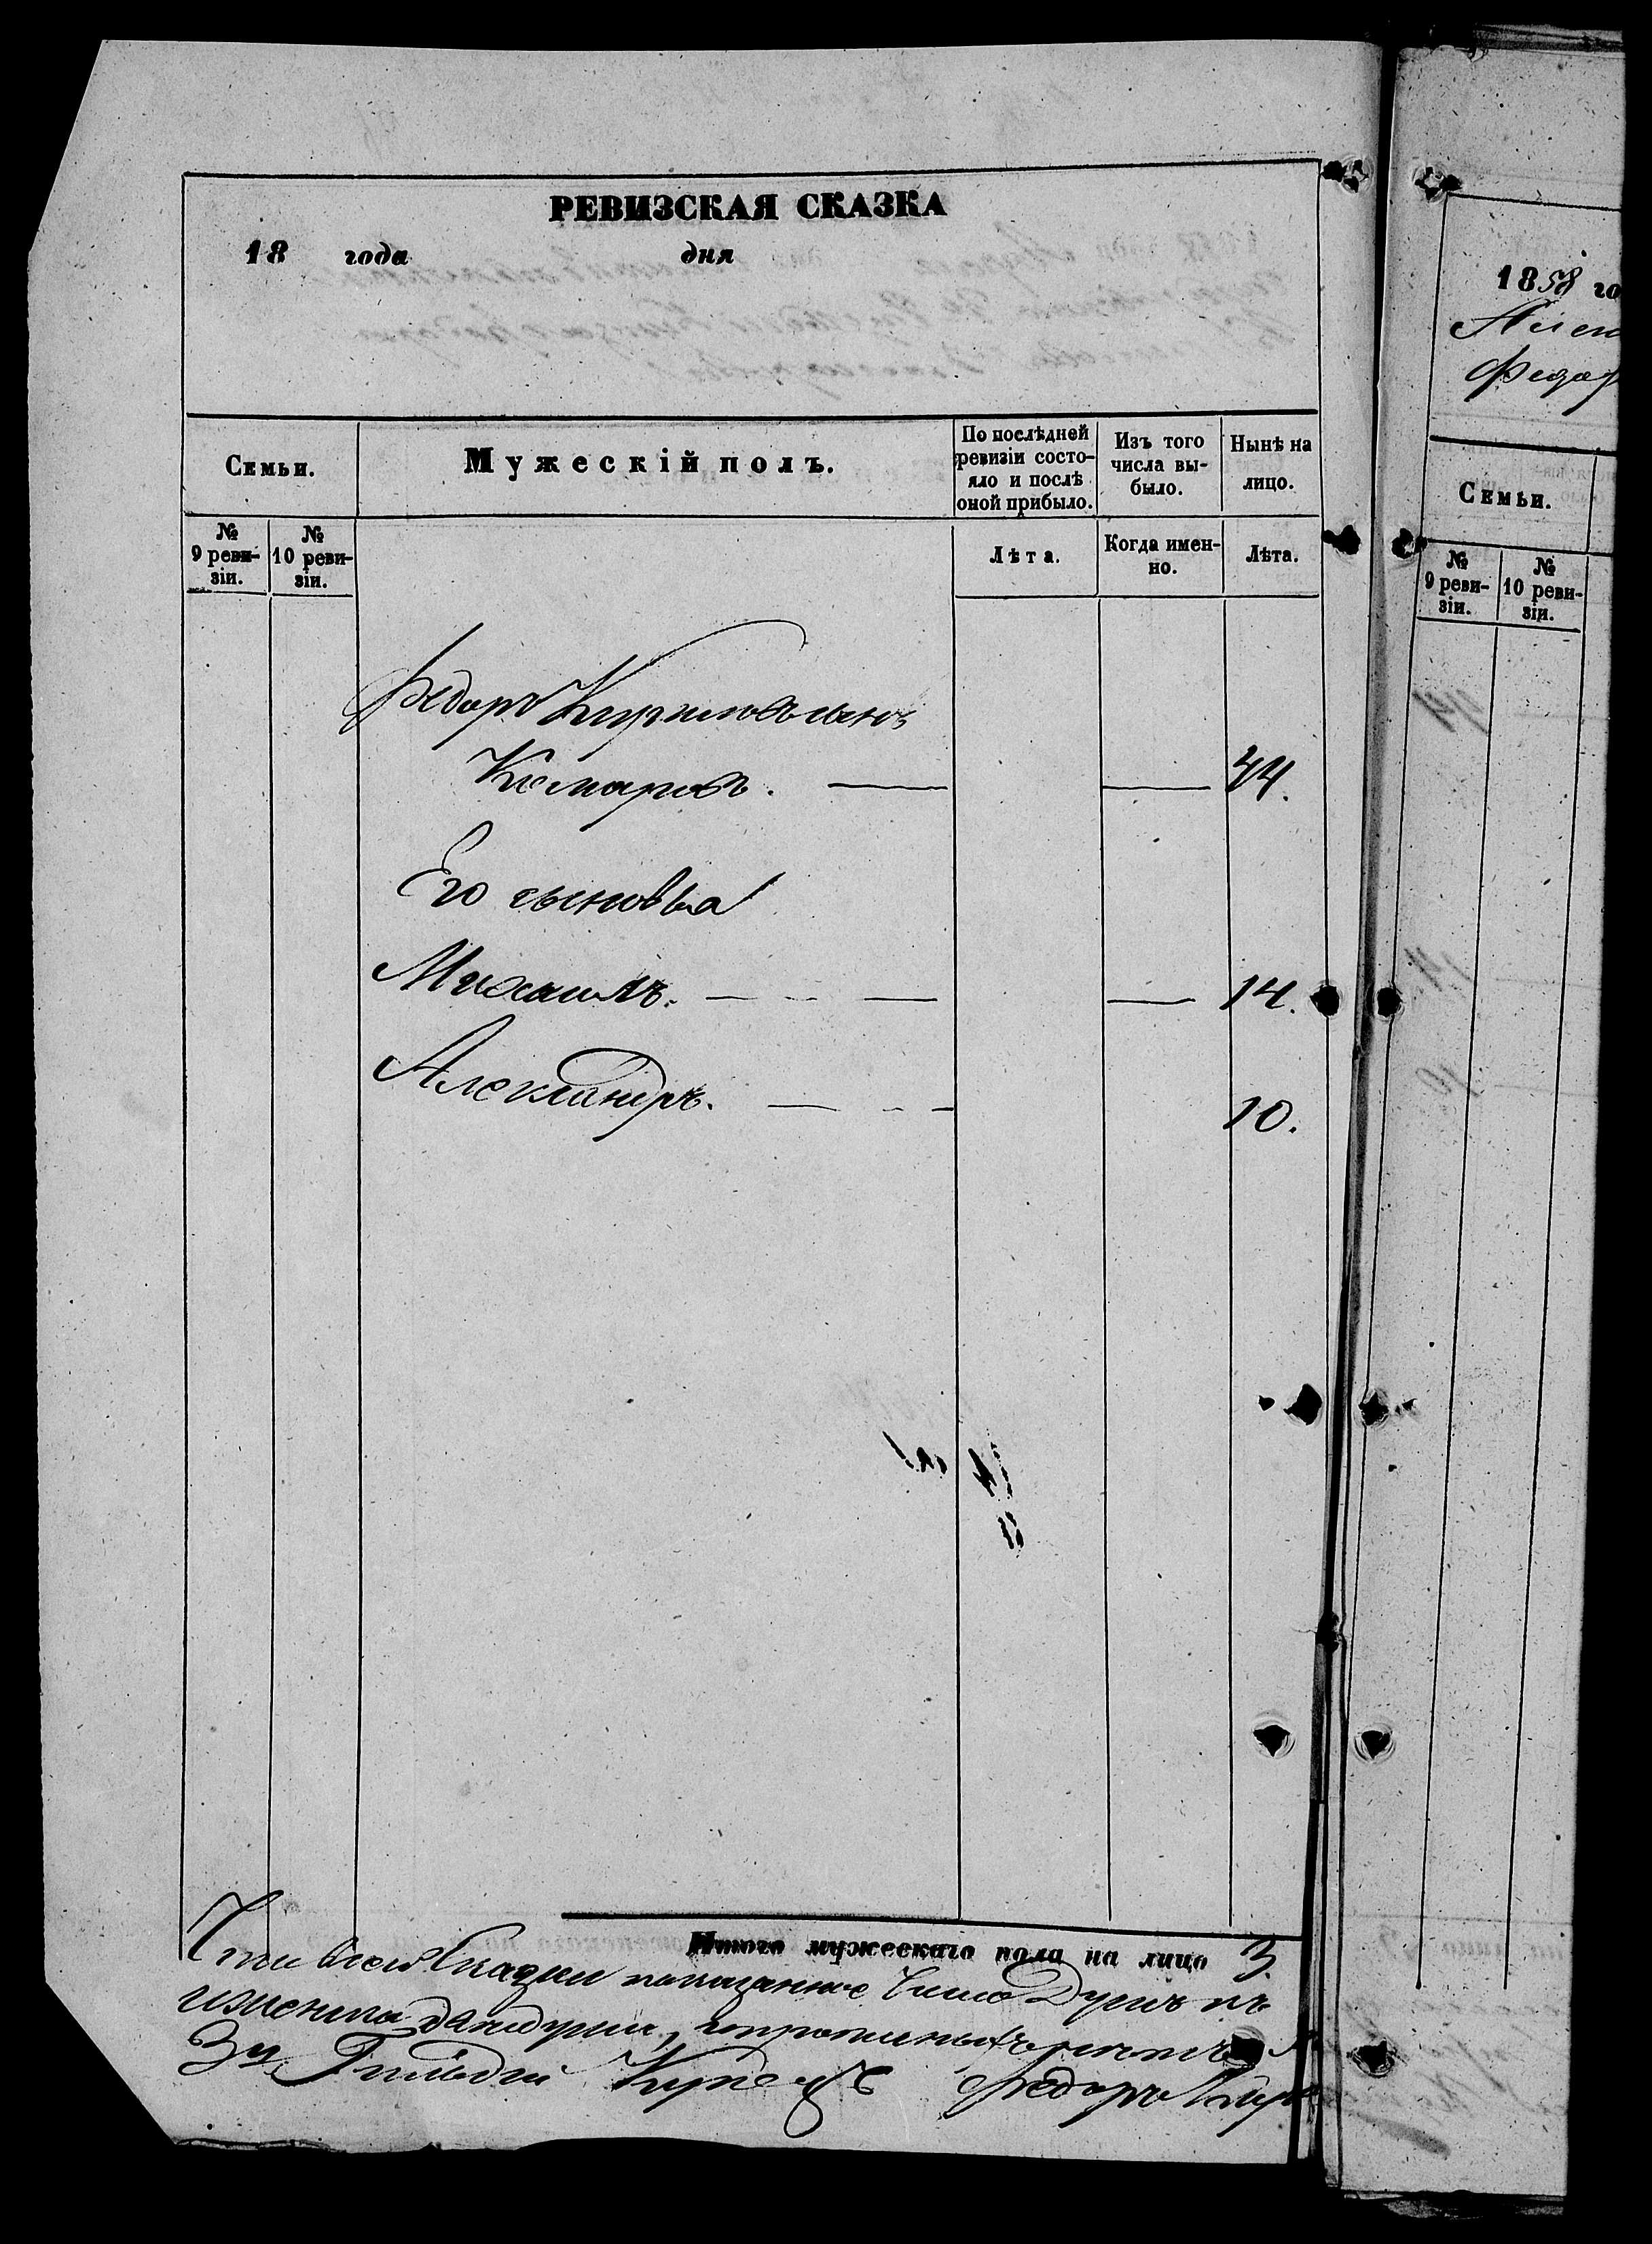 РЕВИЗСКАЯ СКАЗКА
18 года дня
Семьи.
Мужескій полъ.
По послѣдней ревизіи состояло и послѣ оной прибыло.
Изъ того числа выбыло.
Нынѣ на лицо.
№ 9 ревизіи.
№ 10 ревизіи.
Лѣта.
Когда именно.
Лѣта.
Федоръ Кириловъ сынъ
Комаровъ. 44.
Его сыновья
Михаилъ. 14.
Александръ. 10.
Итого мужескаго пола на лицо 3.
Что в сей Сказки показанное Число Душъ
3й Гильдіи Купецъ Федоръ Кир
1858 го
Алек
Федор
Семьи.
№ 9 ревизіи.
№ 10 ревизіи.